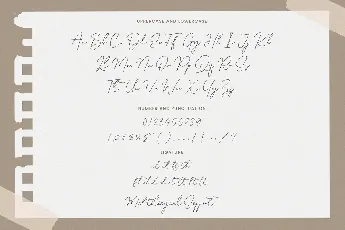 UPPERCASE AND LOWERCASE
Aa Bb Cc Dd Ee Ff Gg Hh Ii Jj Kk
Ll Mm Nn Oo Pp Qq Rr Ss
Tt Uu Vv Ww Xx Yy Zz
NUMBER AND PUNCTUATION
0123456789
LIGATURE
Multilingual Support